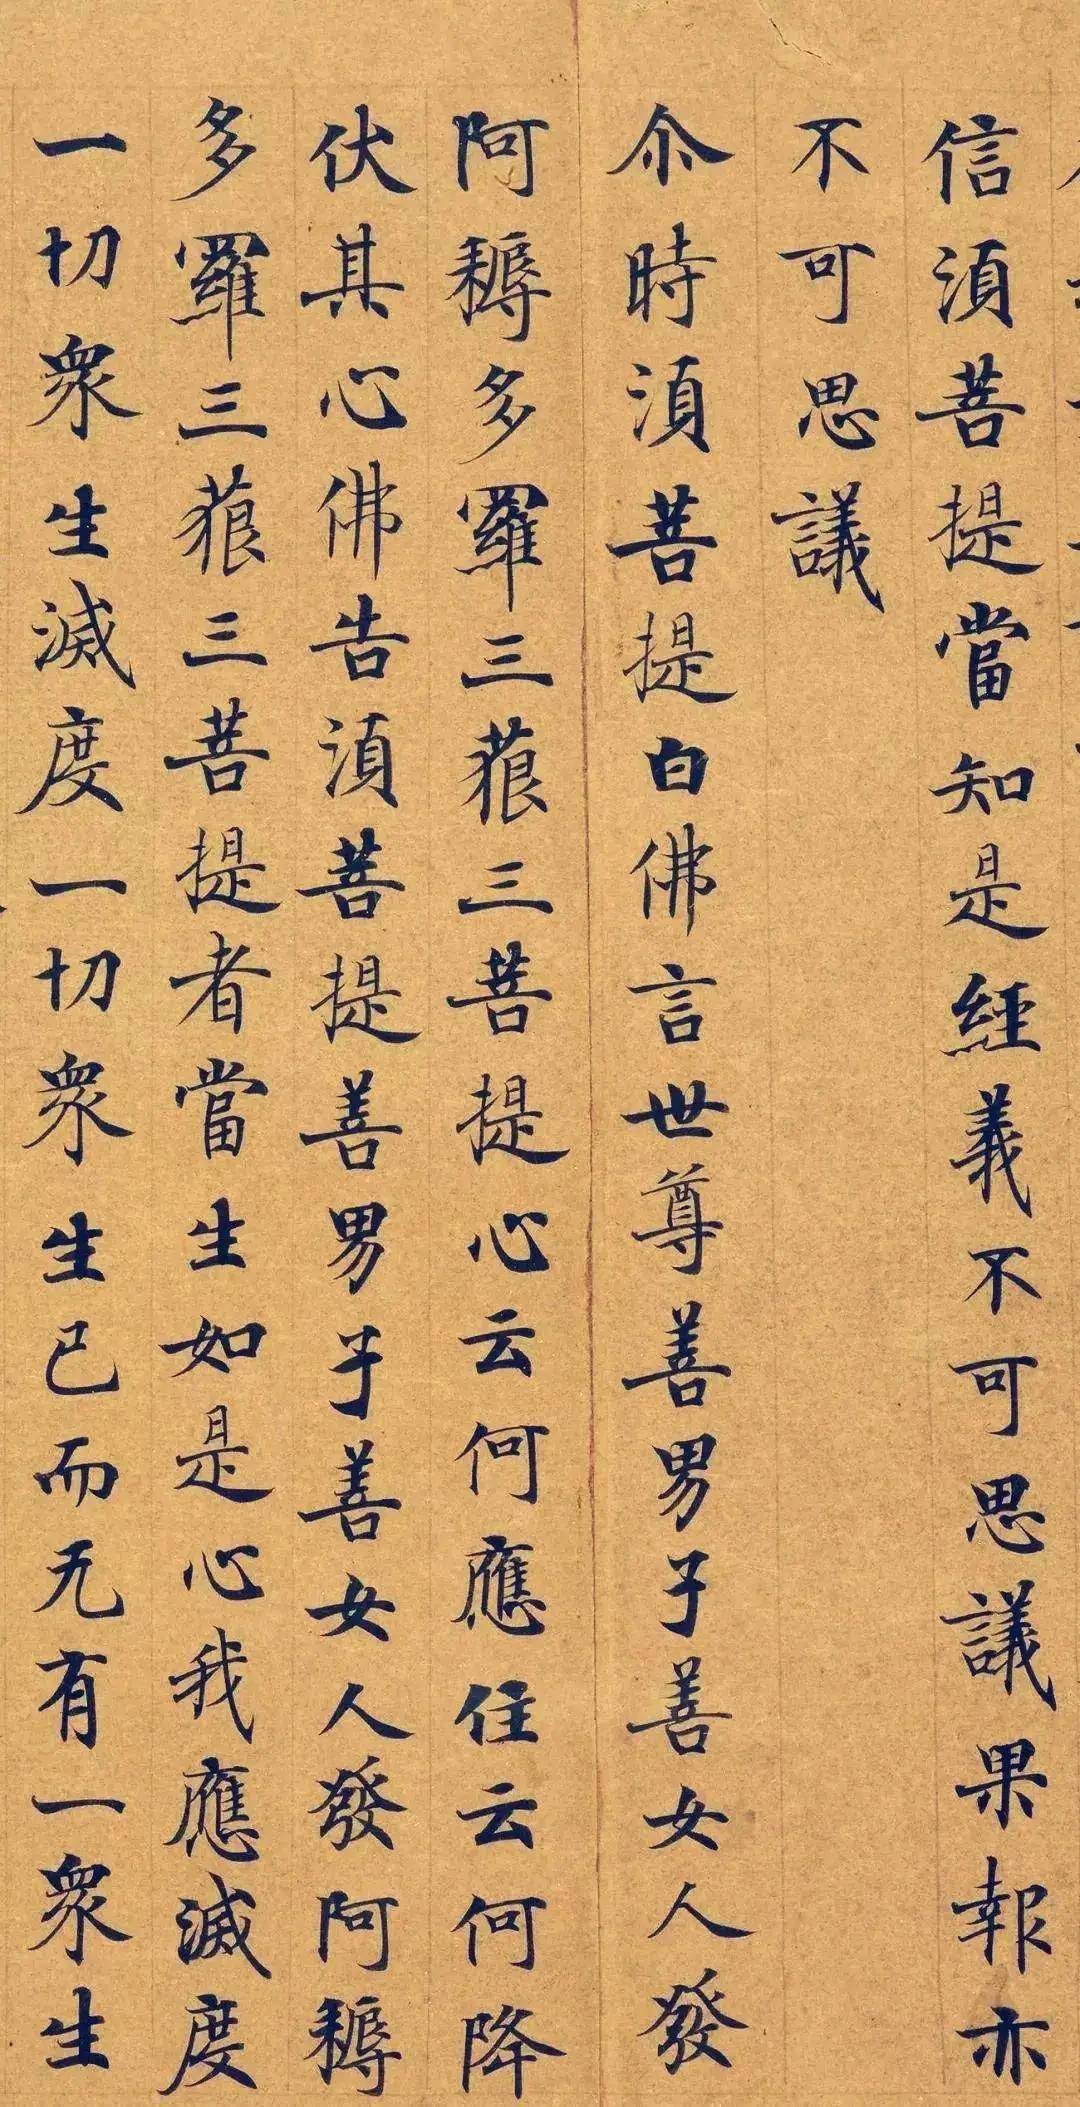 信須菩提當知是經義不可思議果報亦
不可思議
尒時須菩提白佛言世尊善男子善女人發
阿耨多羅三藐三菩提心云何應住云何降
伏其心佛告須菩提善男子善女人發阿耨
多羅三藐三菩提者當生如是心我應滅度
一切眾生滅度一切眾生已而无有一眾生